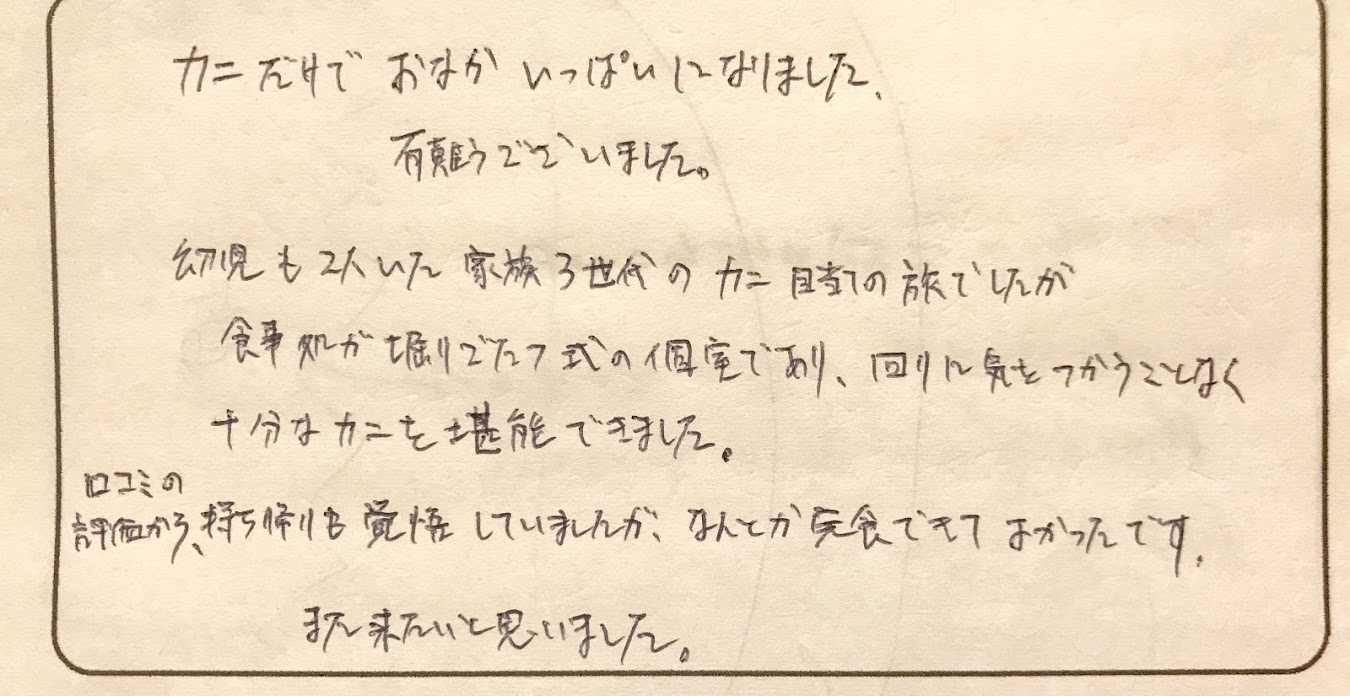 カニだけで おなか いっぱいになりました、
有難うございました。
幼児も2人いた 家族3世代の カニ目当ての旅でしたが
食事処が堀りごたつ式の個室であり、回りに気をつかうことなく
十分なカニを堪能できました。
口コミの
評価から、持ち帰りも覚悟していましたが、なんとか完食できてよかったです。
また来たいと思いました。